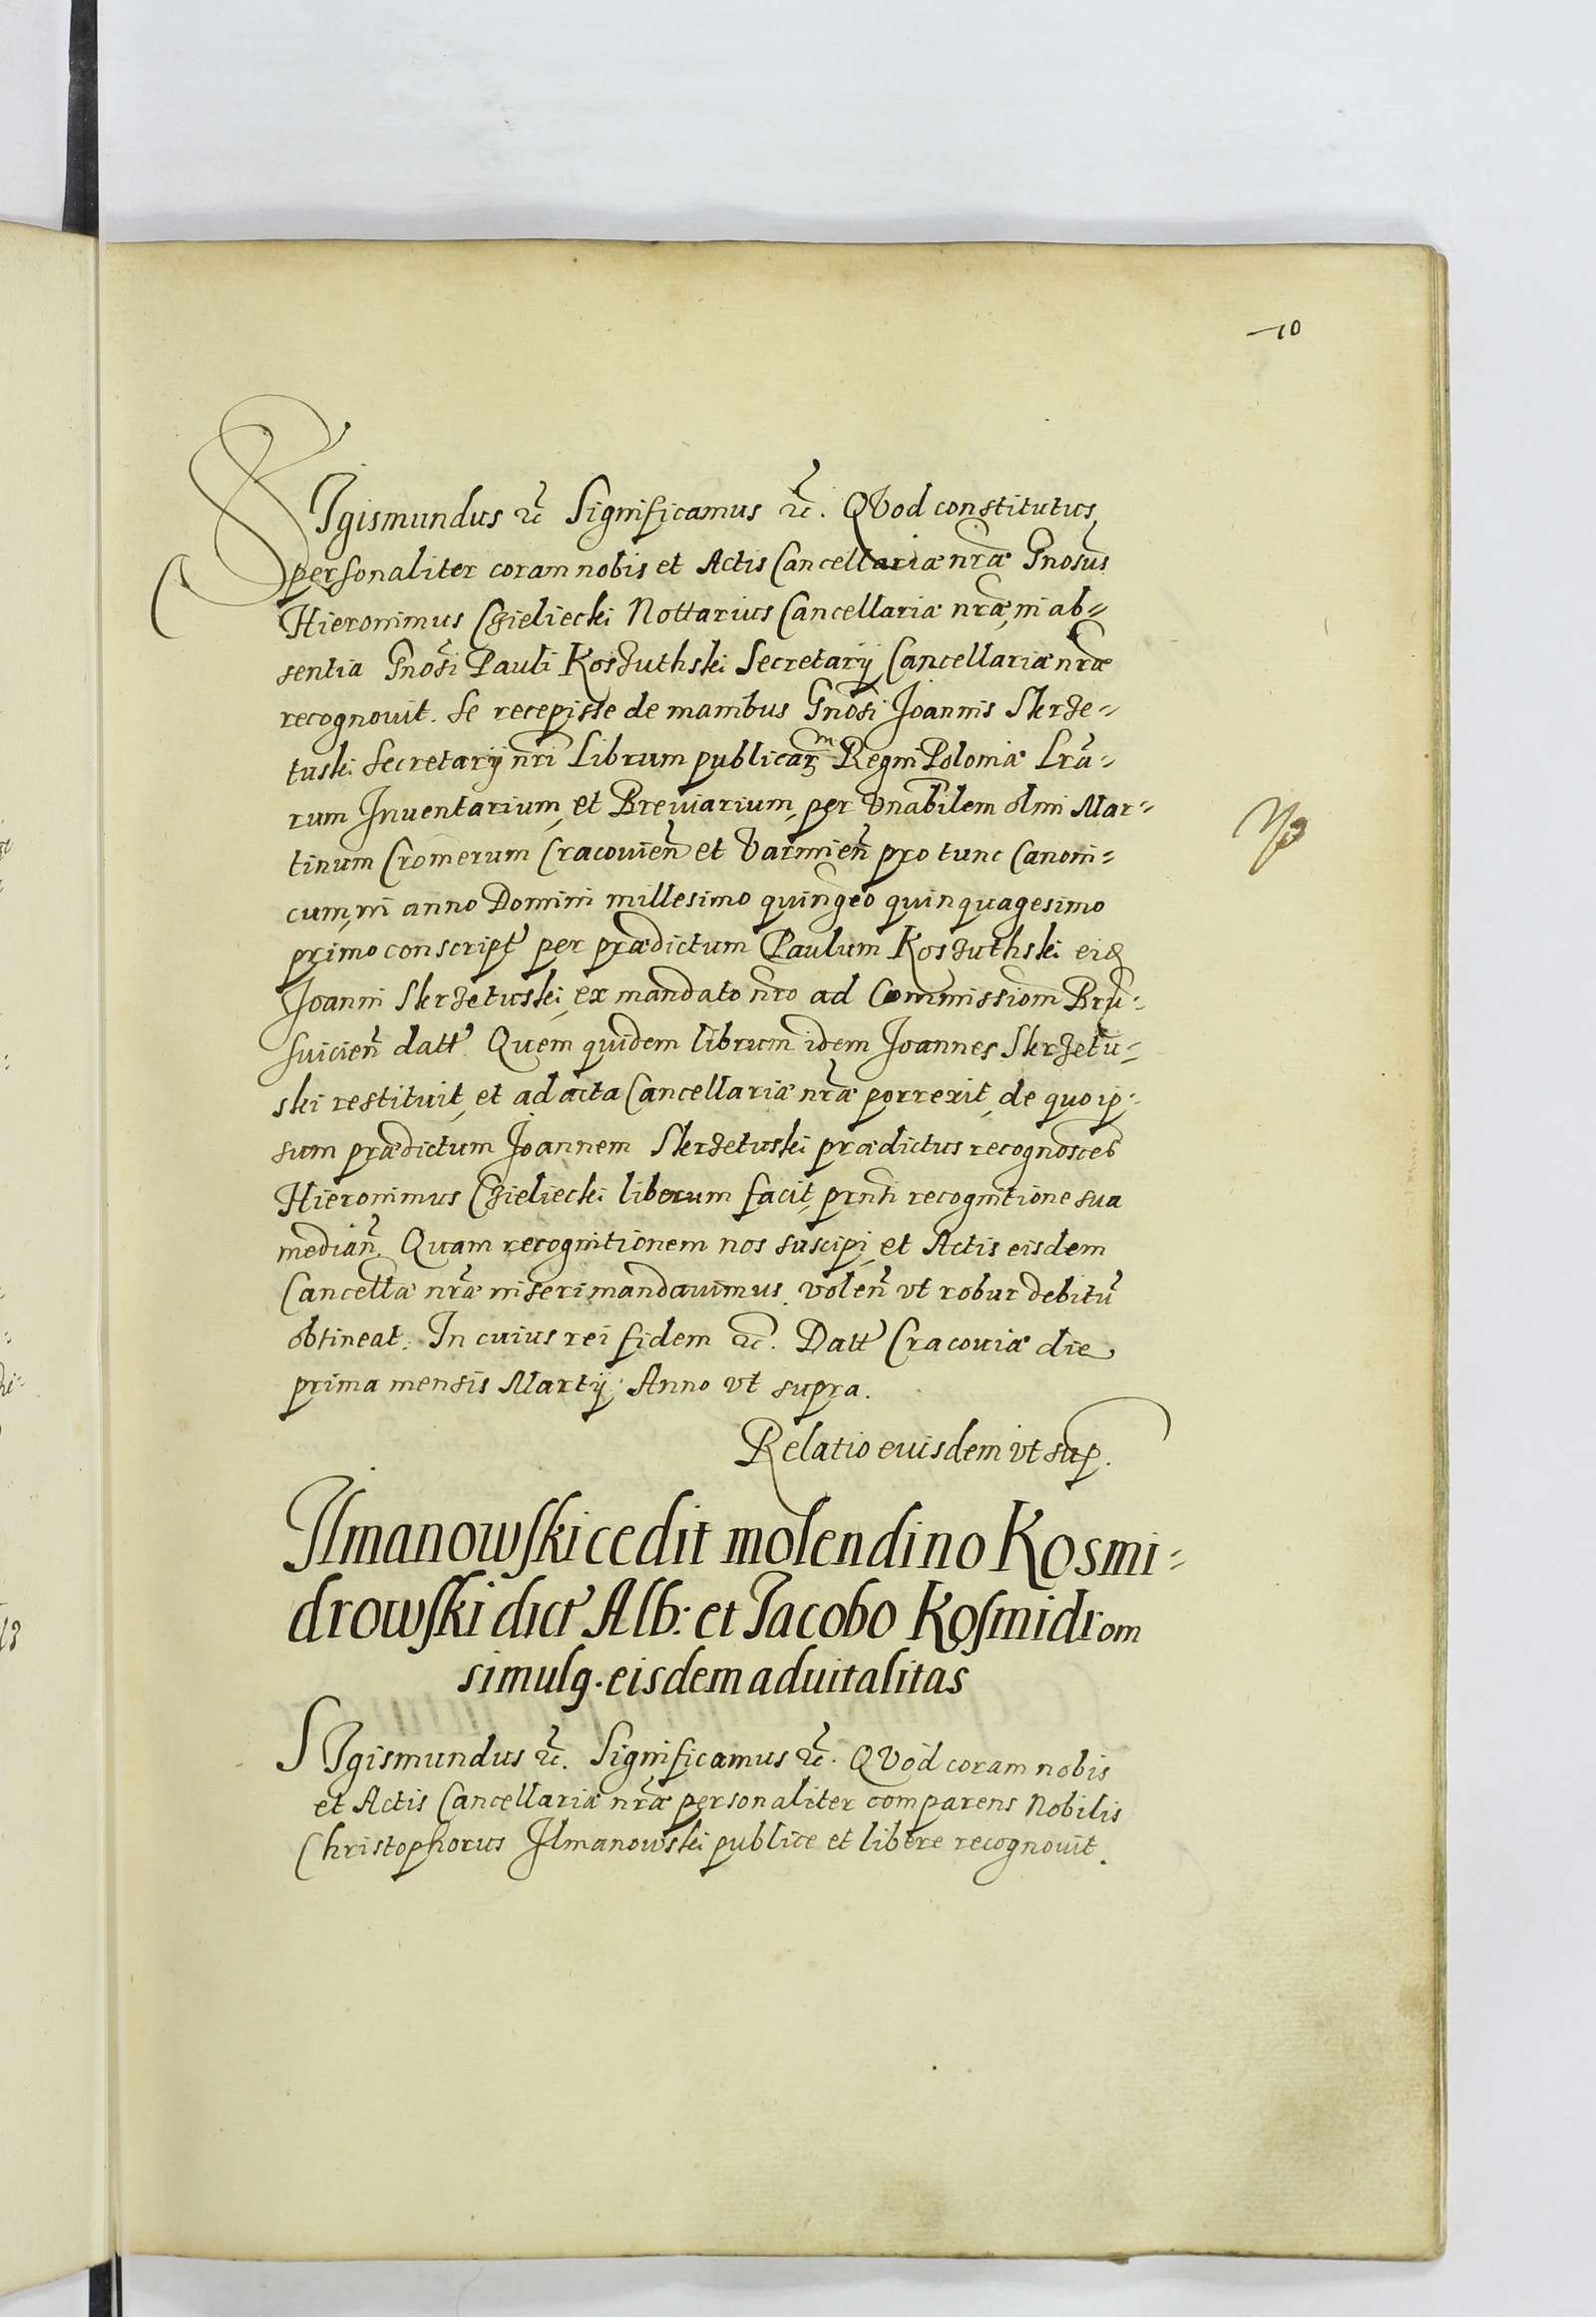 10
SIgismundus ꝛc̃ Significamus ꝛc̃. QVod constitutus
personaliter coram nobis et Actis Cancellariæ nr̃æ Gnosus̃
Hieronimus Chieliecki Nottarius Cancellariæ nr̃æ, in ab=
sentia Gnosĩ Pauli Koszuthski Secretarij Cancellariæ nr̃æ
recognovit. Se recepisse de manibus Gnosĩ Joannis Skrze=
tuski Secretarij nr̃i Librum publicar̃m Regni Poloniæ Lrã=
rum Inventarium, et Breviarium, per Vnab̃ilem olim Mar=
tinum Cromerum Cracovień et Varmień pro tunc Canoni=
cum, in anno Domini millesimo quingẽo quinquagesimo
primo conscript̃ per prædictum Paulum Koszuthski eid
Joanni Skrzetuski, ex mandato nr̃o ad Commissiom̃ Brũ=
suicień datt̃. Quem quidem librum idem Joannes Skrzetu=
ski restituit, et ad acta Cancellariæ nr̃æ porrexit, de quo ip=
sum prædictum Joannem Skrzetuski prædictus recognosceñ
Hieronimus Chieliecki liberum facit, prnti recognitione sua
median̄. Quam recognitionem nos suscipi, et Actis eisdem
Cancellæ nr̃æ inseri mandavimus. volen̄ vt robur debitũ
obtineat. In cuius rei fidem ꝛc̃. Datt̃ Cracoviæ die
prima mensis Martij. Anno vt supra.
Relatio euisdem vt sup.
Ilmanowski cedit molendino Kosmi=
drowski dict̃ Alb: et Jacobo Kosmidrom
simulq. eisdem advitalitas
SIgismundus ꝛc̃. Significamus ꝛc̃. QVod coram nobis
et Actis Cancellariæ nr̃æ personaliter comparens Nobilis
Christophorus Ilmanowski publice et libere recognovit.